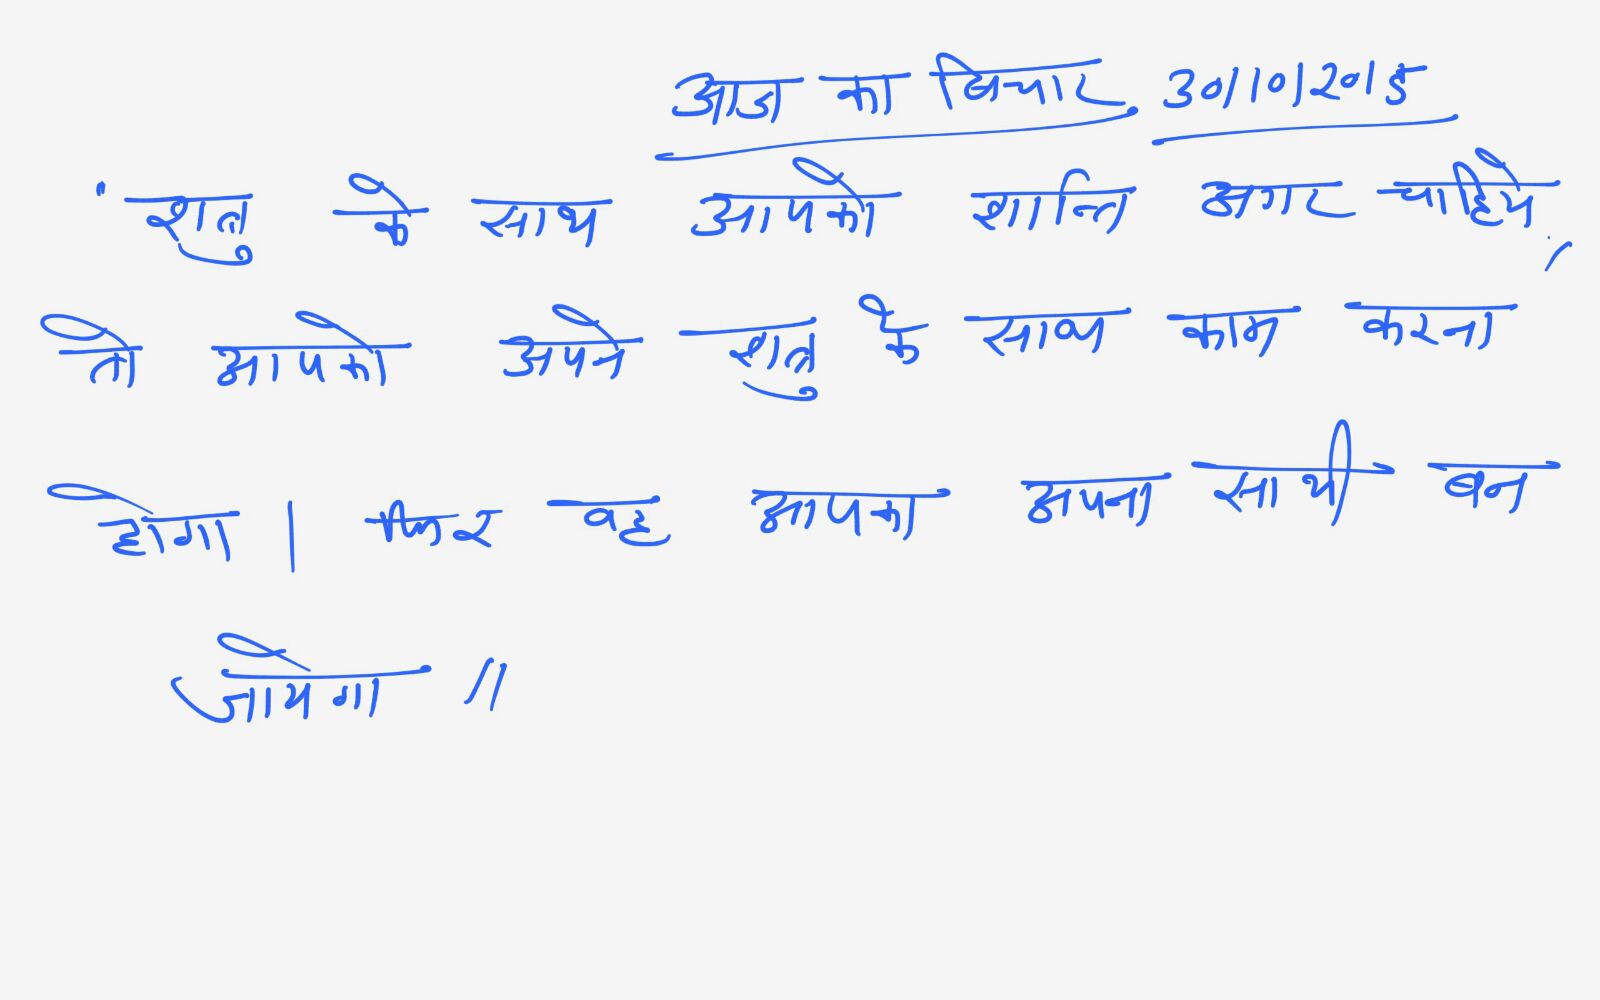 आज का विचार 30/10/2015
"शत्रु के साथ आपको शान्ति अगर चाहिये,
तो आपको अपने शत्रु के साथ काम करना
होगा | फिर वह आपका अपना साथी बन
जायेगा ||